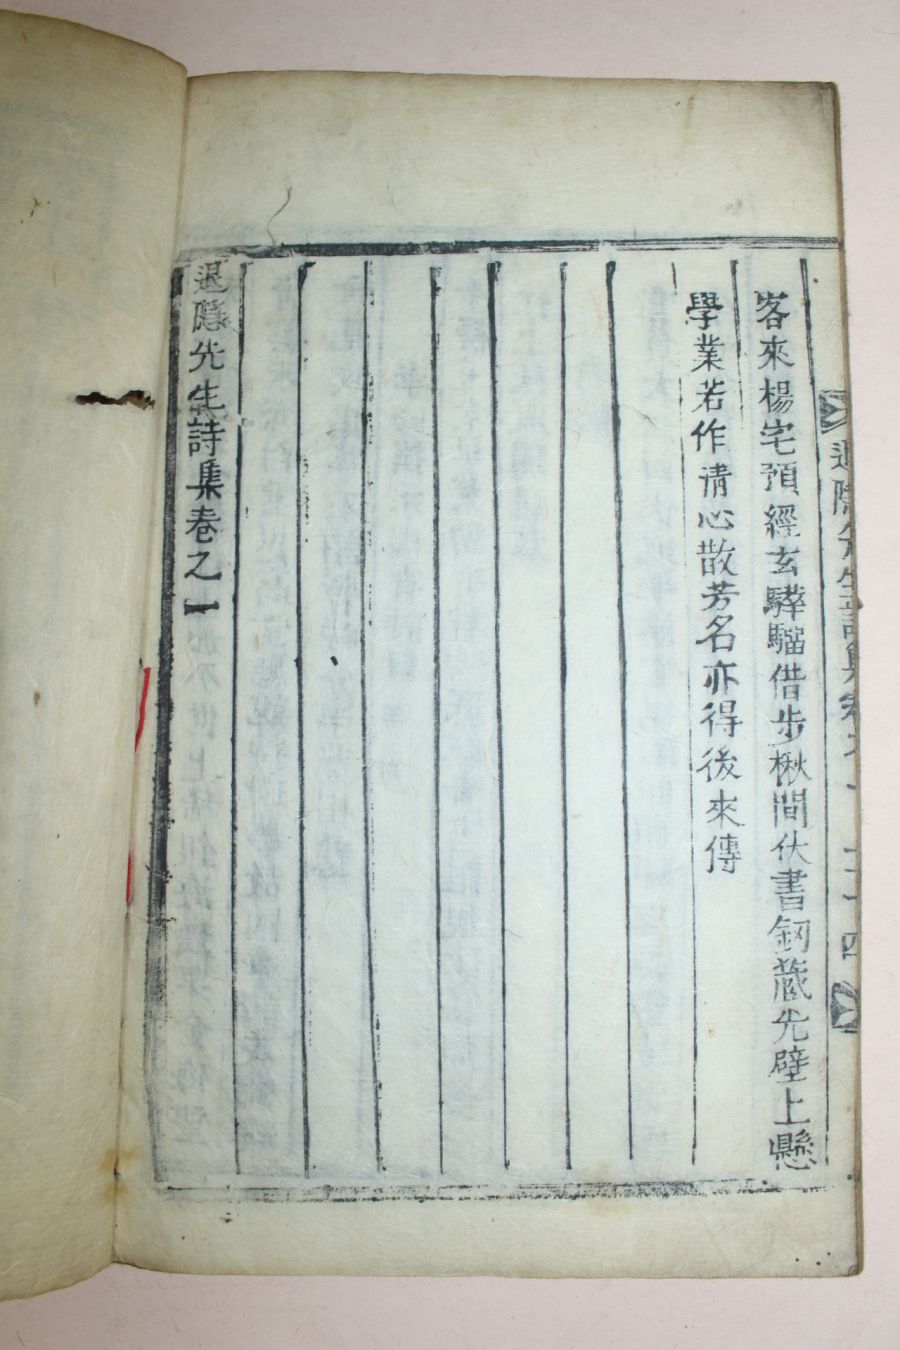 退隱先生詩集卷之一
客來楊宅預經玄驊騮借步楸間伏書釼藏光壁上懸
學業若作淸心散芳名亦得後來傳
退隱先生詩集卷之一